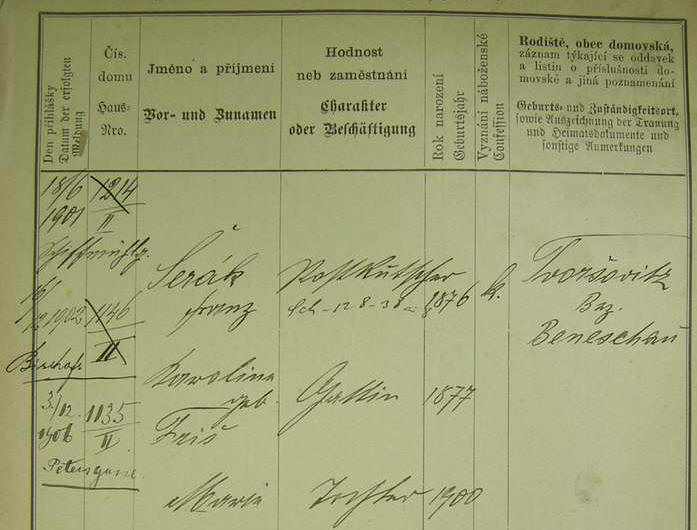 Den přihlášky
Datum der erfolgten
Meldung
Čís.
domu
Haus-
Nro.
Jméno a příjmení
Vor- und Zunamen
Hodnost
neb zaměstnání
Charakter
oder Beschäftigung
Rok narození
Geburtsjahr
Vyznání náboženské
Confession
Rodiště, obec domovská,
záznam týkající se oddavek
a listin o příslušnosti do-
movské a jiná poznamenání
Geburts- und Zuständigkeitsort,
sowie Auszeichnung der Trauung
und Heimatsdokumente und
sonstige Anmerkungen
18/6 1214
1901 II
Schiffmühlg.
Šerák Postkutscher
Franz 1876 k.
Tvoršovitz
Bez.
Beneschau
1902 1146
II
Bischofs
Karolina
geb. Gattin 1877
3/12. 1135
1906 II. Friš
Petersgasse
Marie Tochter 1900